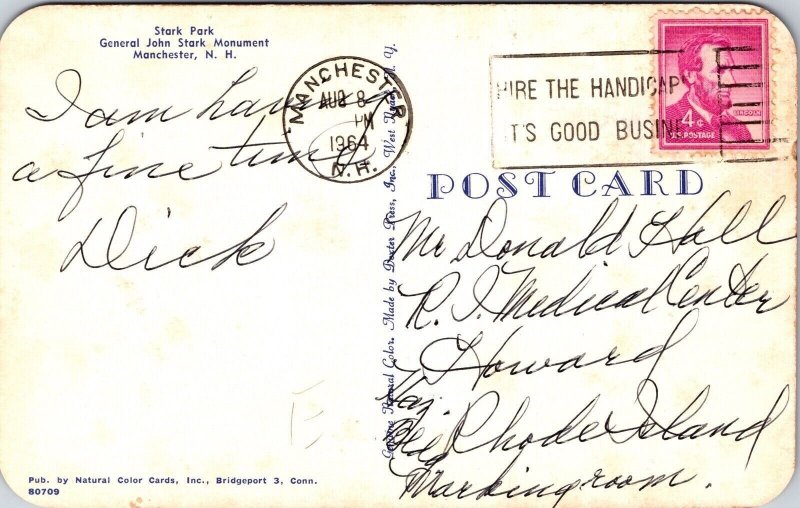 Stark Park
General John Stark Monument
Manchester, N. H.
I am having
a fine time
Dick
Pub. by Natural Color Cards, Inc., Bridgeport 3, Conn.
80709
Natural Color. Made by Dexter Press, Inc., West Nyack, N. Y.
MANCHESTER
AUG 8
PM
1964
N.H.
HIRE THE HANDICAP
IT'S GOOD BUSIN
4¢
LINCOLN
U.S. POSTAGE
POST CARD
Mr Donald Hall
R. I. Medical Center
Howard
Rhode Island
room.